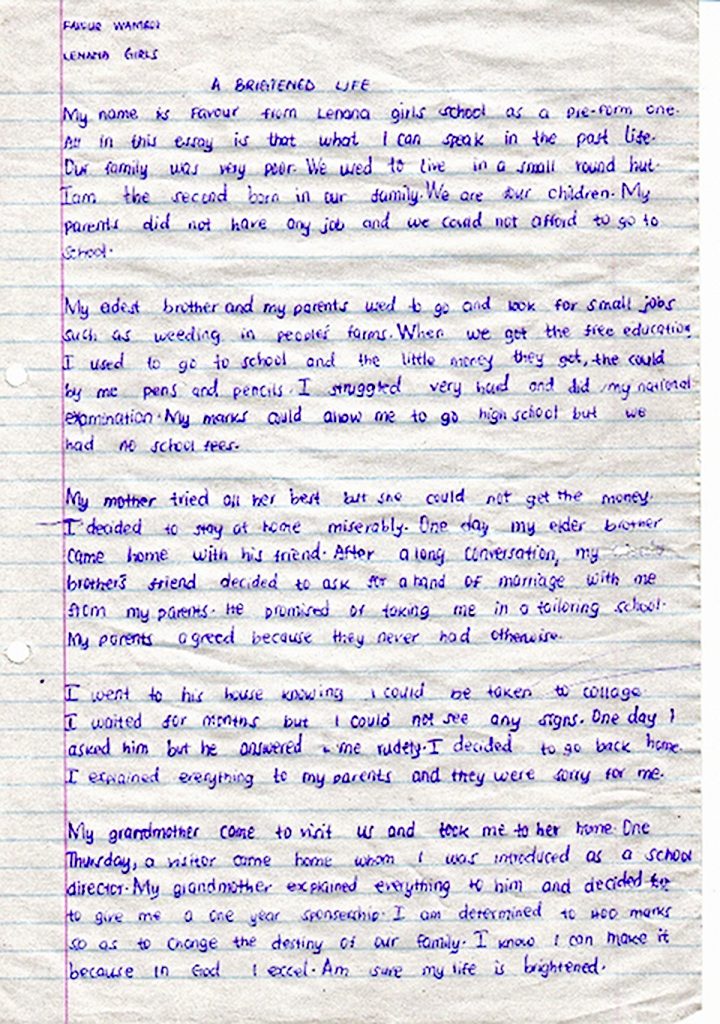 FAVOUR WAMBOI
LENANA GIRLS
A BRIGTENED LIFE
My name is Favour from Lenana girls school as a pre-form one.
All in this essay is that what I can speak in the past life.
Our family was very poor. We used to live in a small round hut.
Iam the second born in our family. We are four children. My
parents did not have any job and we could not afford to go to
school.
My edest brother and my parents used to go and look for small jobs
such as weeding in people's farms. When we got the free education
I used to go to school and the little money they got, the could
by me pens and pencils. I struggled very hard and did my national
examination. My marks could allow me to go high school but we
had no school fees.
My mother tried all her best but she could not get the money.
I decided to stay at home miserably. One day my elder brother
came home with his friend. After a long conversation, my
brother's friend decided to ask for a hand of marriage with me
from my parents. He promised of taking me in a tailoring school.
My parents agreed because they never had otherwise.
I went to his house knowing I could be taken to collage
I waited for months but I could not see any signs. One day I
asked him but he answered me rudely. I decided to go back home.
I explained everything to my parents and they were sorry for me.
My grandmother came to visit us and took me to her home. One
Thursday, a visitor came home whom I was introduced as a school
director. My grandmother explained everything to him and decided
to give me a one year sponsership. I am determined to 400 marks
so as to change the destiny of our family. I know I can make it
because in God I excel. Am sure my life is brightened.